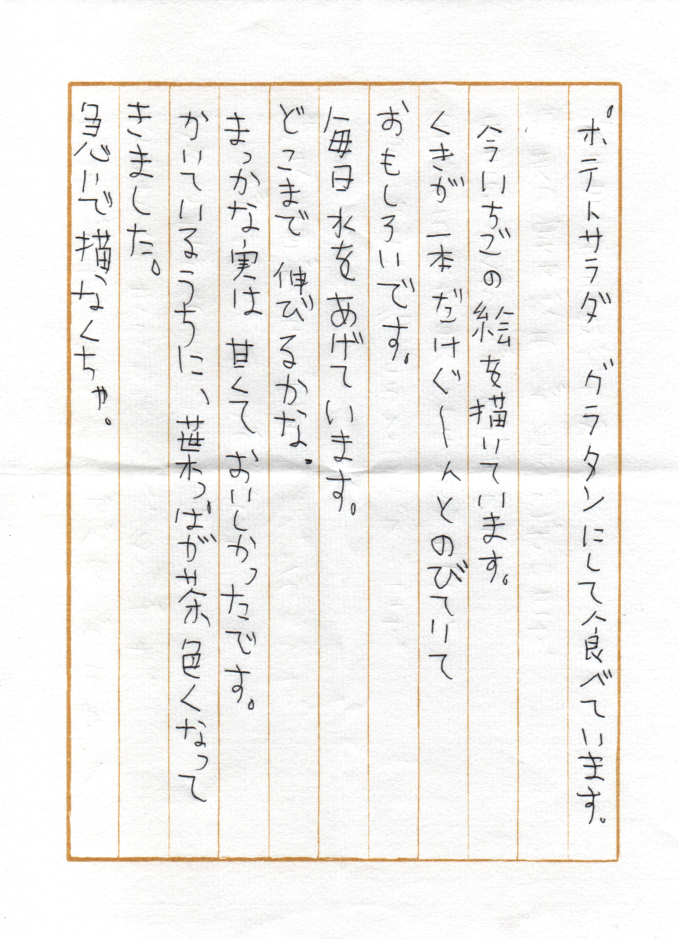 ポテトサラダ グラタンにして食べています。
今いちごの絵を描いています。
くきが一本だけぐーんとのびていて
おもしろいです。
毎日水をあげています。
どこまで伸びるかな。
まっかな実は甘くておいしかったです。
かいているうちに、葉っぱが茶色くなって
きました。
急いで描かなくちゃ。